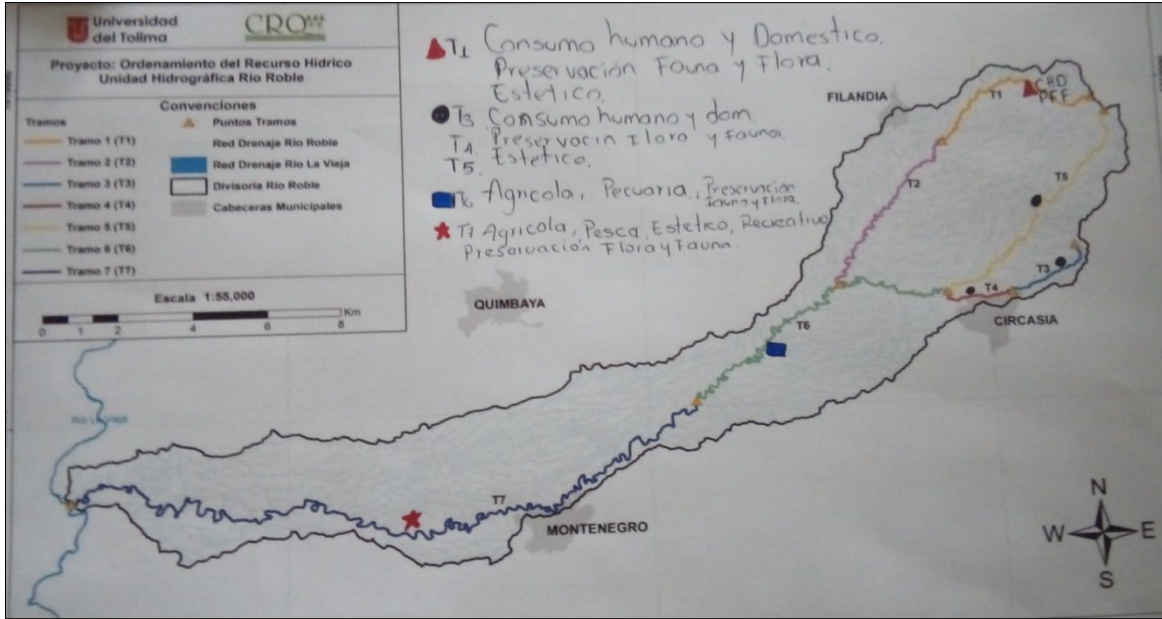 Universidad
del Tolima
CRQ
Proyecto: Ordenamiento del Recurso Hídrico
Unidad Hidrográfica Río Roble
Convenciones
Tramos
Tramo 1 (T1)
Tramo 2 (T2)
Tramo 3 (T3)
Tramo 4 (T4)
Tramo 5 (T5)
Tramo 6 (T6)
Tramo 7 (T7)
Puntos Tramos
Red Drenaje Río Roble
Red Drenaje Río La Vieja
Divisoria Río Roble
Cabeceras Municipales
Escala 1:55,000
Km
0 1 2 4 6 8
T1 Consumo humano y Domestico.
Preservación Fauna y Flora.
Estetico.
T3 Consumo humano y dom.
T4 Preservacin Flora y Fauna.
T5. Estetico.
T6 Agricola, Pecuaria, Preservación
fauna y Flora.
T7 Agricola, Pesca, Estetico, Recreativo
Preservación Flora y Fauna.
FILANDIA
T1
CHD
PFF
T2
T5
T3
T4
CIRCASIA
QUIMBAYA
T6
T7
MONTENEGRO
N
W E
S